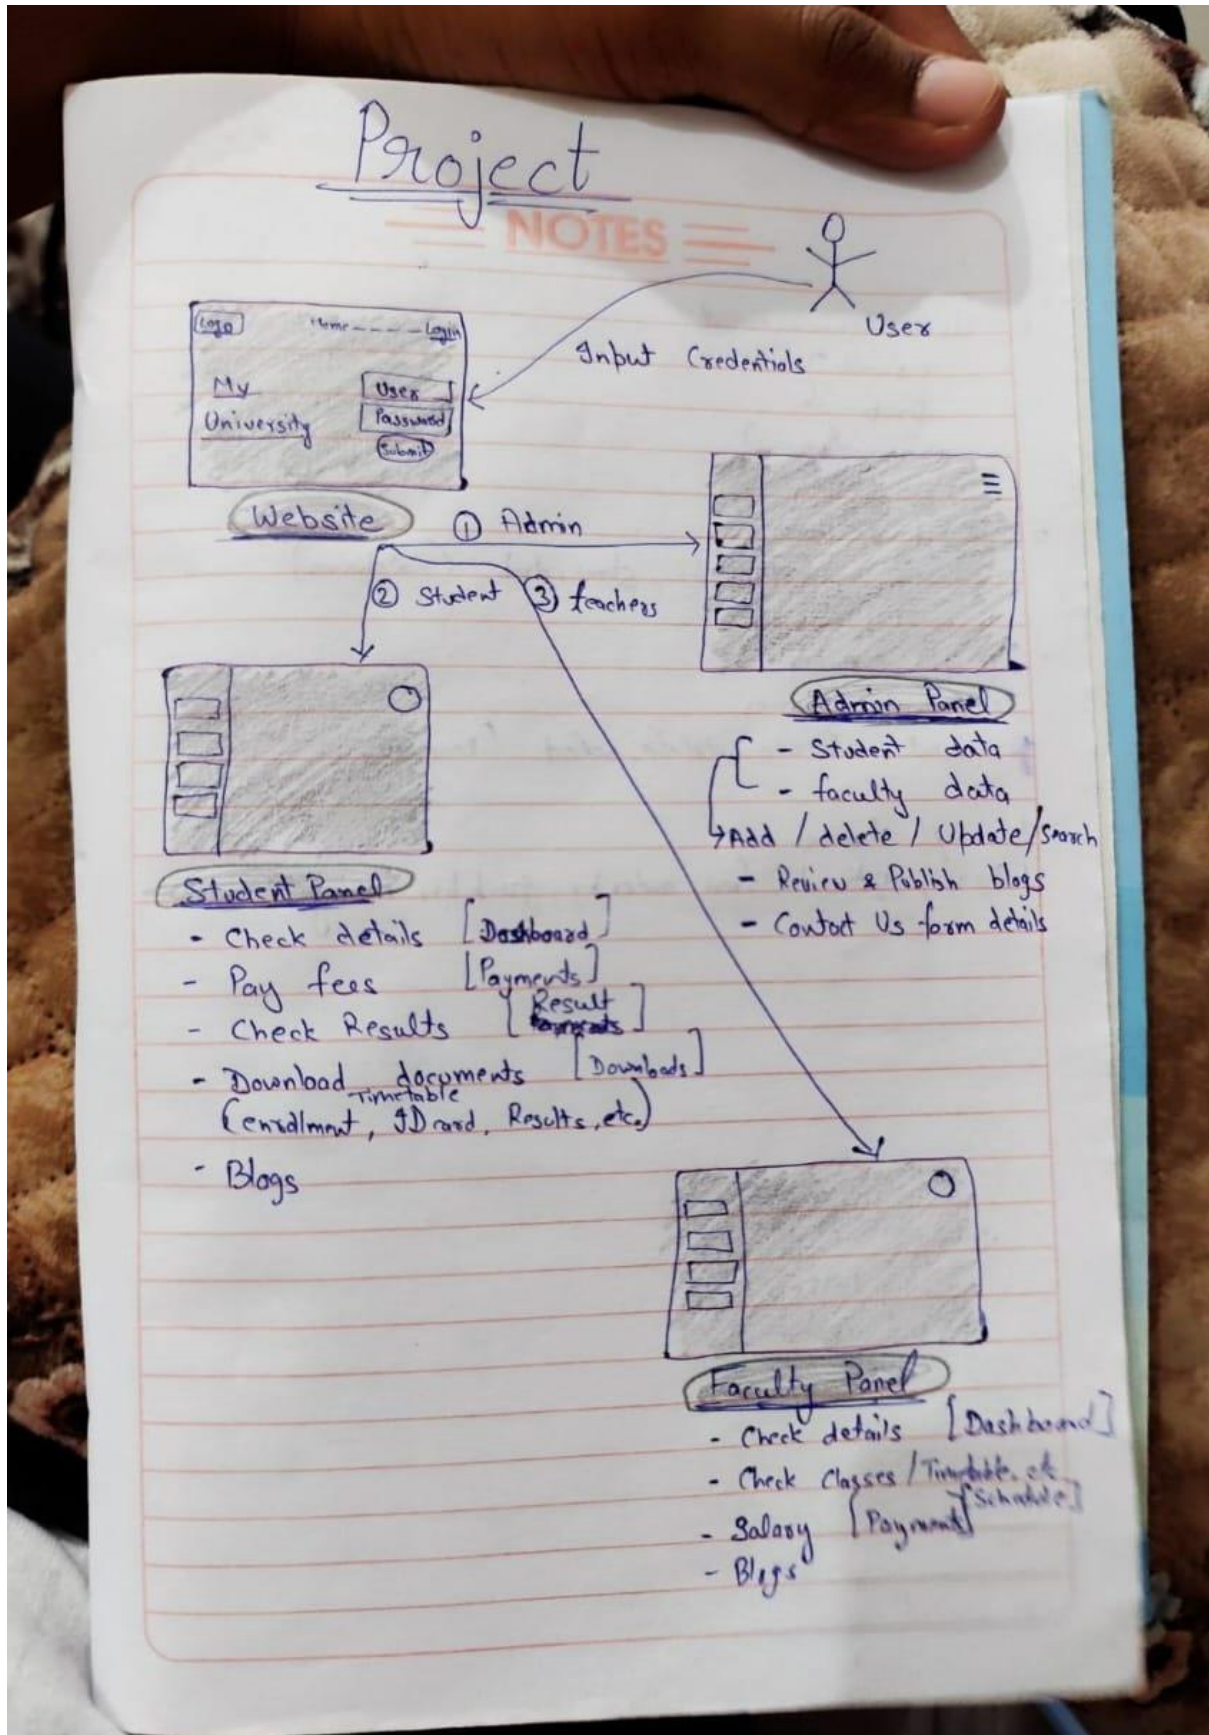 Project
NOTES
User
Input Credentials
Logo Home - - - - Login
My University
User
Password
Submit
Website
① Admin
② Student
③ teachers
Admin Panel
- Student data
- faculty data
Add / delete / Update / Search
- Review & Publish blogs
- Contact Us form details
Student Panel
- Check details [Dashboard]
- Pay fees [Payments]
- Check Results [Result]
- Download documents [Downloads]
Timetable
(enrollment, ID card, Results, etc.)
- Blogs
Faculty Panel
- Check details [Dashboard]
- Check Classes / Timetable, etc
[Schedule]
- Salary [Payment]
- Blogs